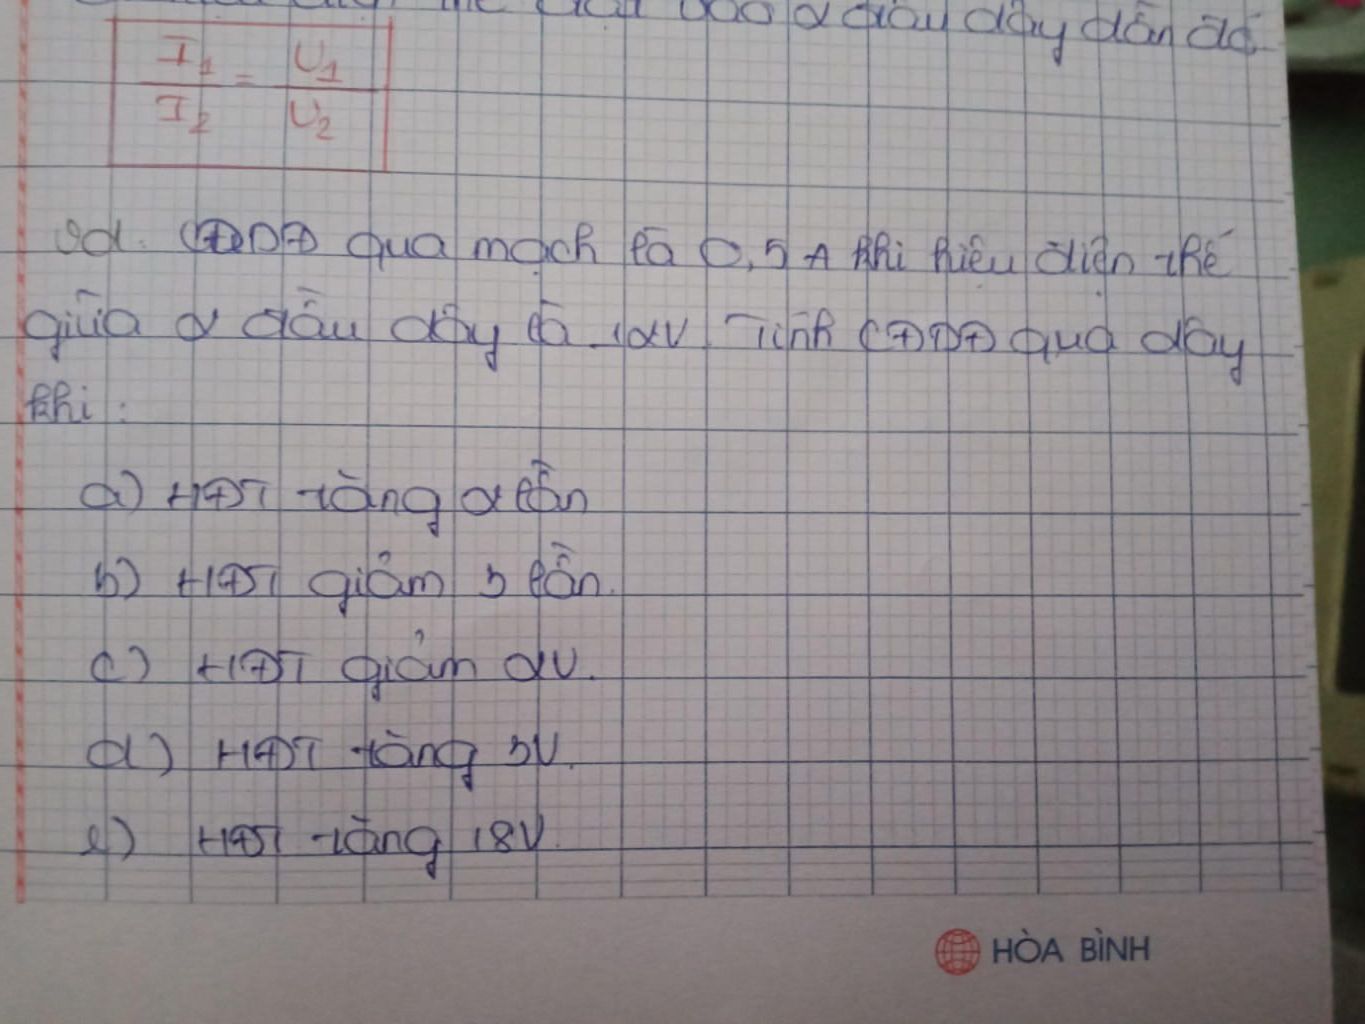 2 đầu dây dẫn đó
I1 / I2 = U1 / U2
vd. CĐDĐ qua mạch là 0,5A khi hiệu điện thế
giữa 2 đầu dây là 12V. Tính CĐDĐ qua dây
khi:
a) HĐT tăng 2 lần
b) HĐT giảm 5 lần.
c) HĐT giảm 2V.
d) HĐT tăng 5V.
e) HĐT tăng 18V.
HÒA BÌNH